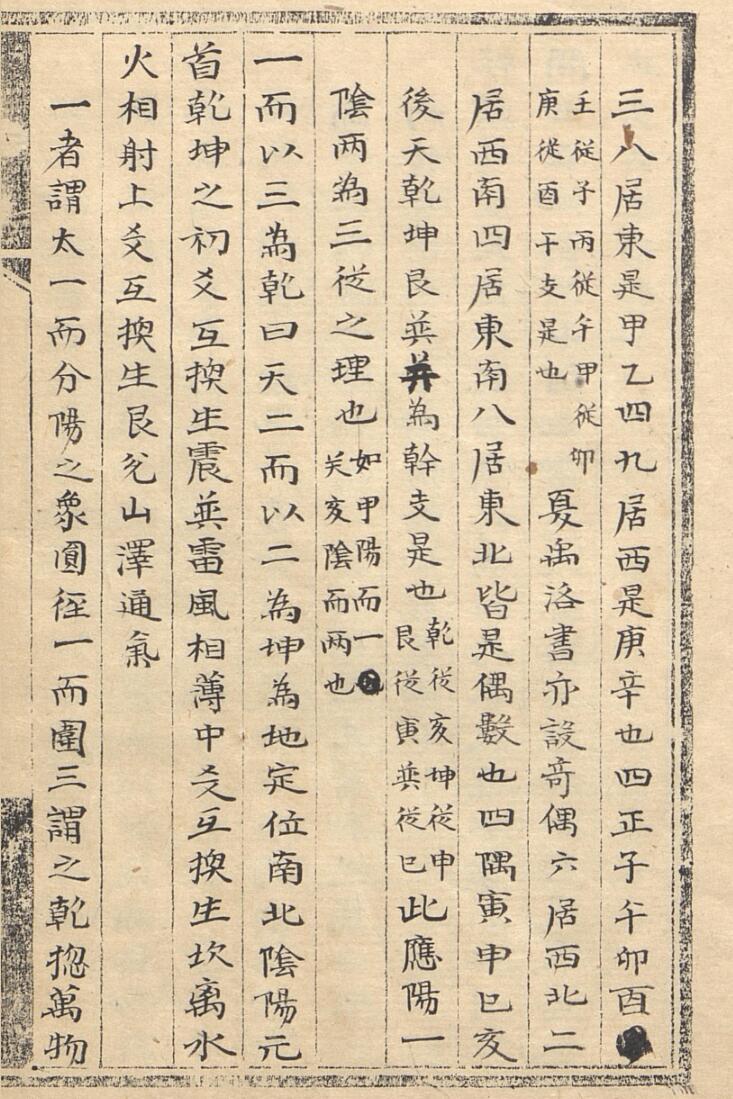 三八居東是甲乙四九居西是庚辛也四正子午卯酉
壬從子丙從午甲從卯
庚從酉干支是也
夏禹洛書亦設奇偶六居西北二
居西南四居東南八居東北皆是偶數也四隅寅申巳亥
後天乾坤艮巽為幹支是也
乾從亥坤從申
艮從寅巽從巳
此應陽一
陰两為三從之理也
如甲陽而一
关亥陰而两也
一而以三為乾曰天二而以二為坤為地定位南北陰陽元
首乾坤之初爻互換生震巽雷風相薄中爻互換生坎离水
火相射上爻互換生艮兊山澤通氣
一者謂太一而分陽之象圓徑一而圍三謂之乾揔萬物